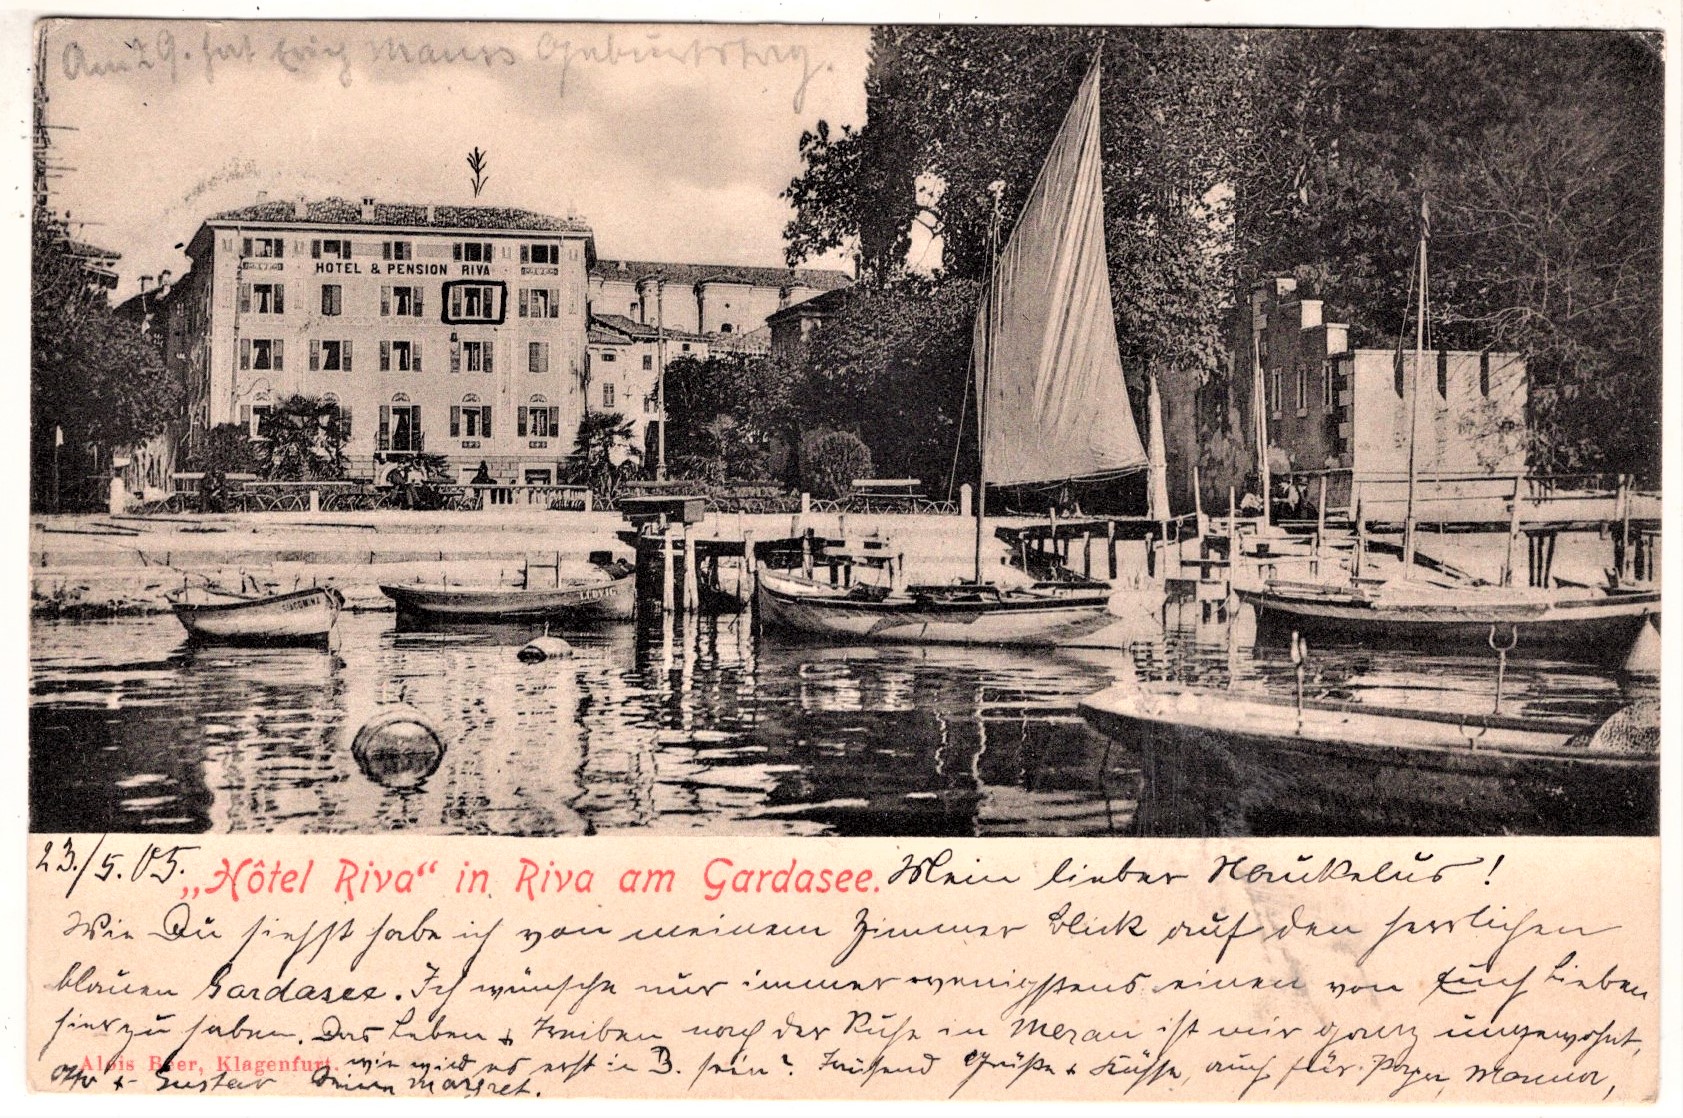 Am 29. hat Erich Maurs Geburtstag.
HOTEL & PENSION RIVA
LUDVIG
23./5.05. „Hôtel Riva“ in Riva am Gardasee. Mein lieber
Wie Du siehst habe ich von meinem Zimmer Blick auf den herrlichen
blauen Gardasee. Ich wünsche nur immer wenigstens einen von Euch Lieben
hier zu haben. Das Leben & Treiben nach der Ruhe in Meran ist mir ganz ungewohnt,
Alois Beer, Klagenfurt.
wie wird es erst in B. sein? Tausend Grüße & Küsse, auch für Papa, Mama,
Otto & Gustav Deine Margret.